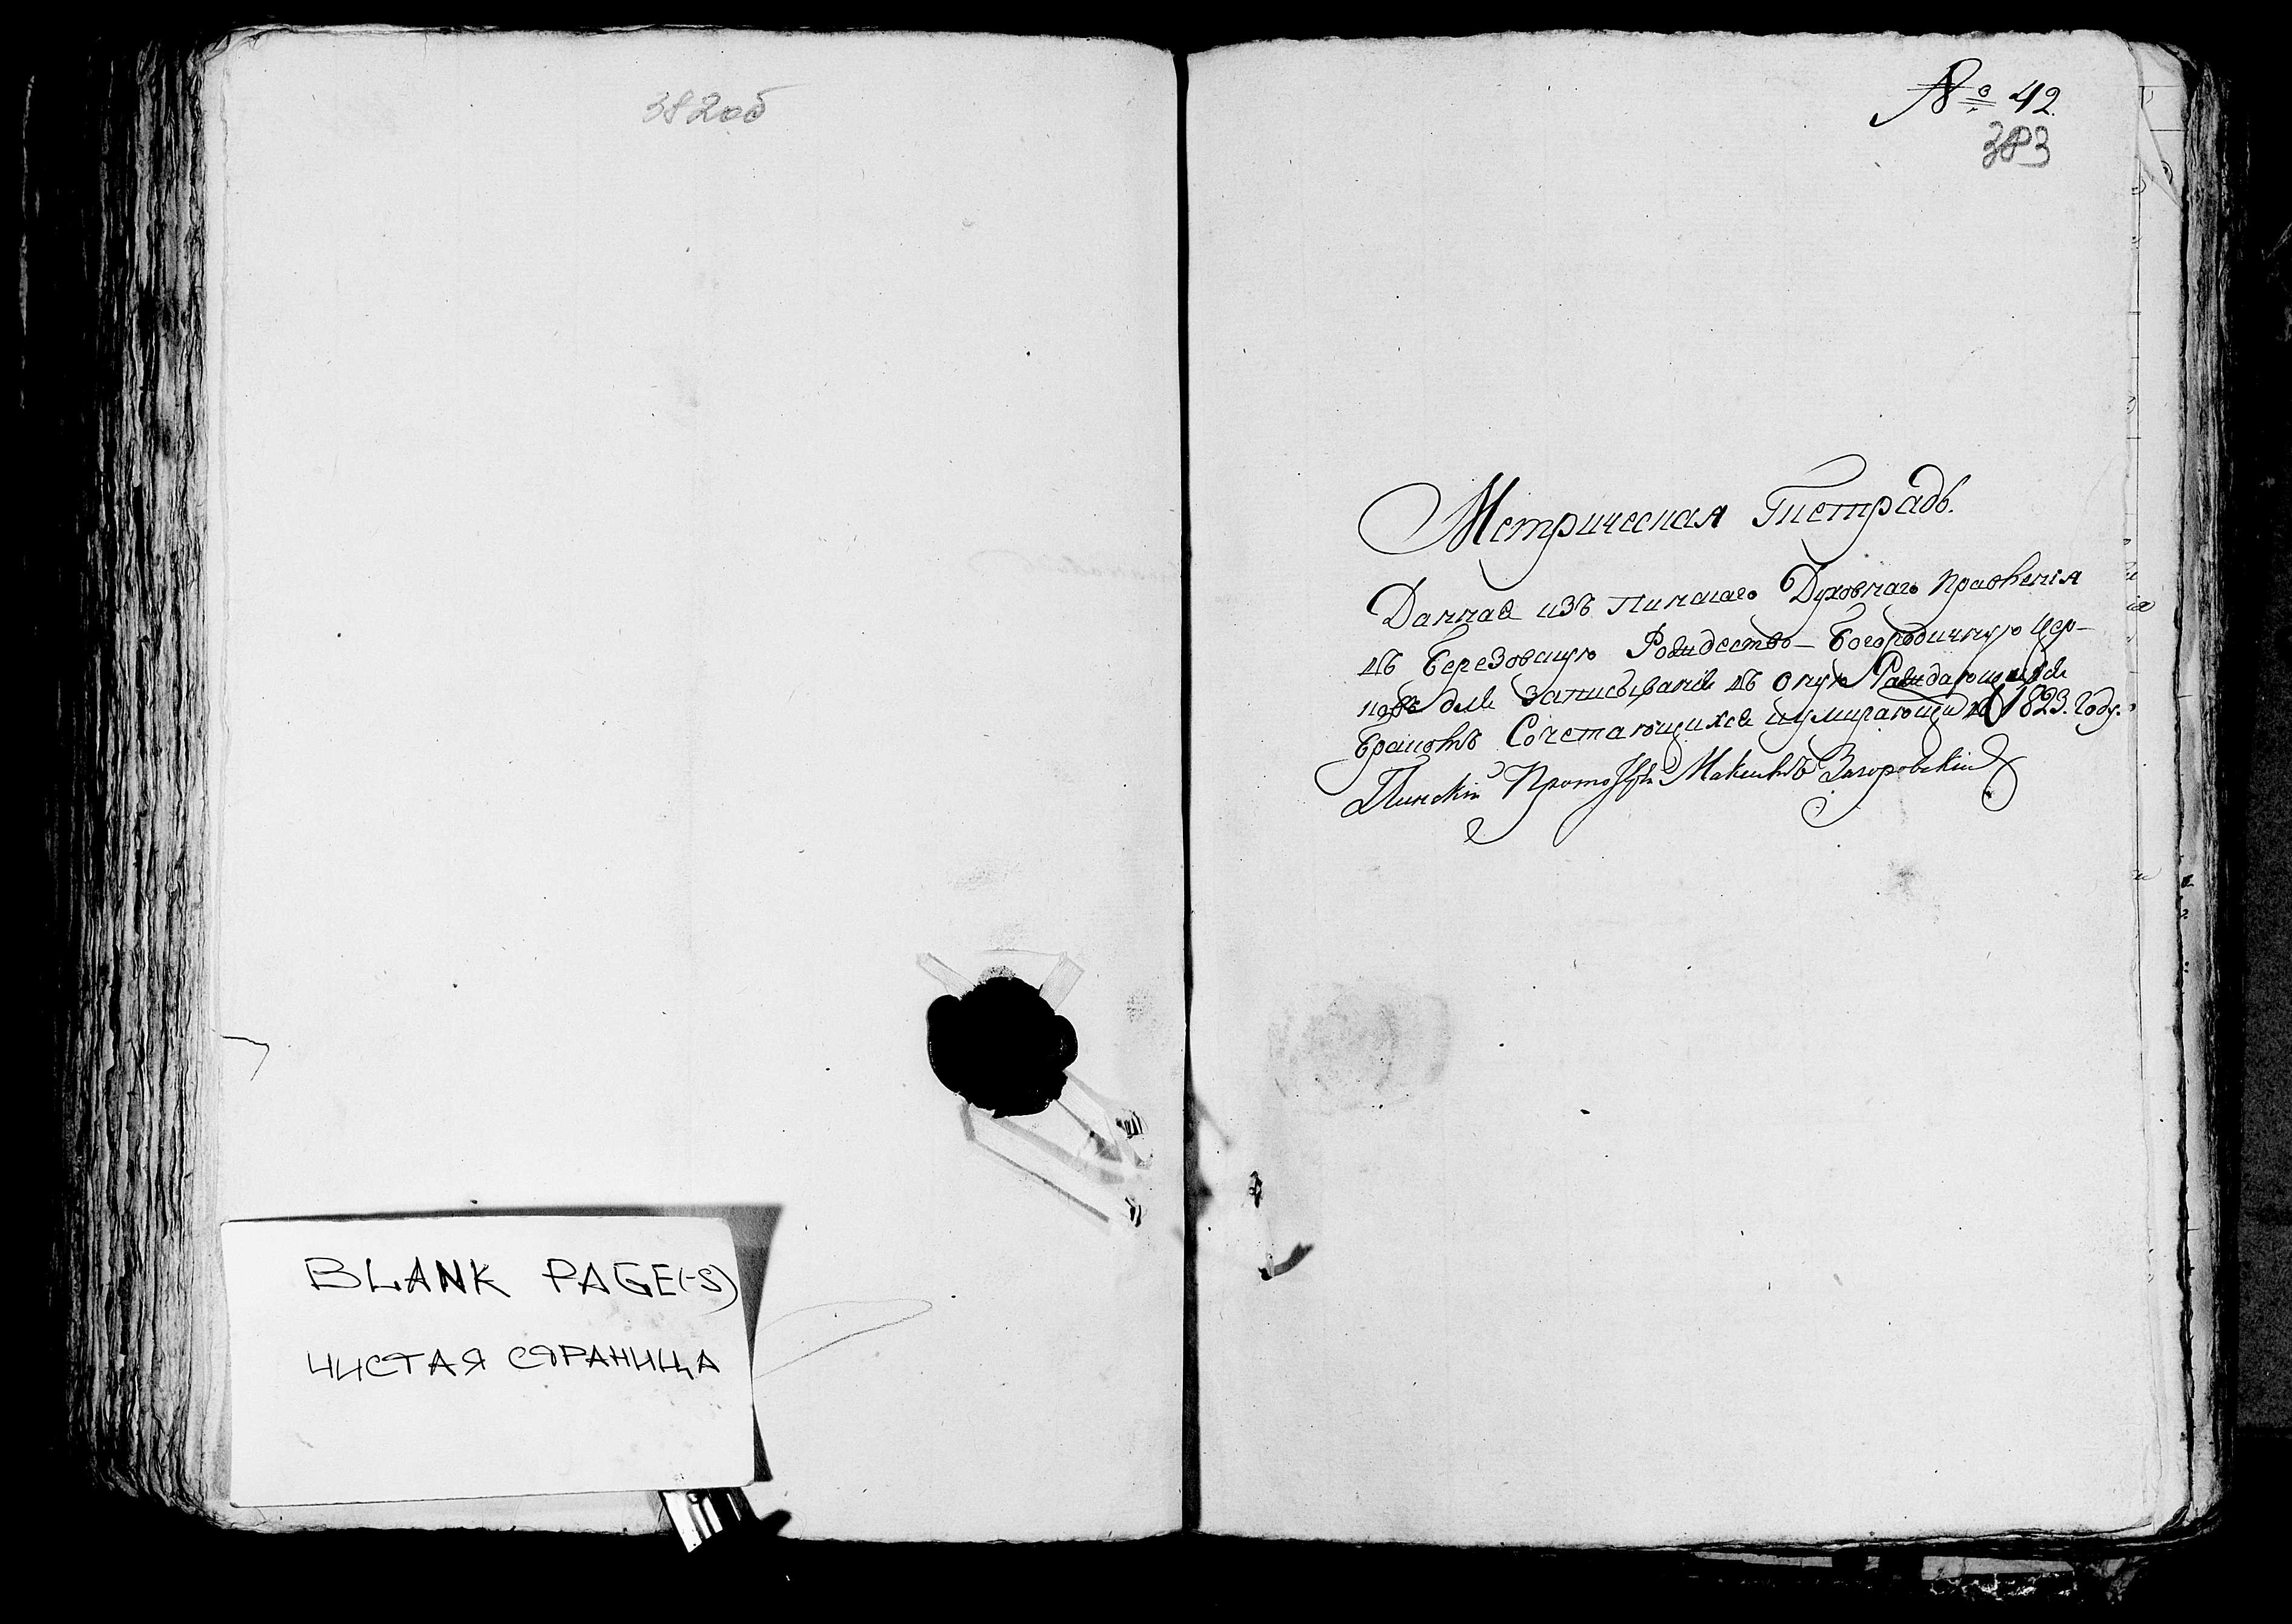 382об
BLANK PAGE(-S)
ЧИСТАЯ СТРАНИЦА
№ 42.
383
Метрическая Тетрадь.
Данная изъ Пинскаго Духовнаго Правленія
въ Березовскую Рождество-Богородичную Цер-
ковь для Записыванія въ оную Раждающихся
Бракомъ Сочетающихся и умирающих 1823. Году.
Пинскій Прото Максимъ Загоровскій